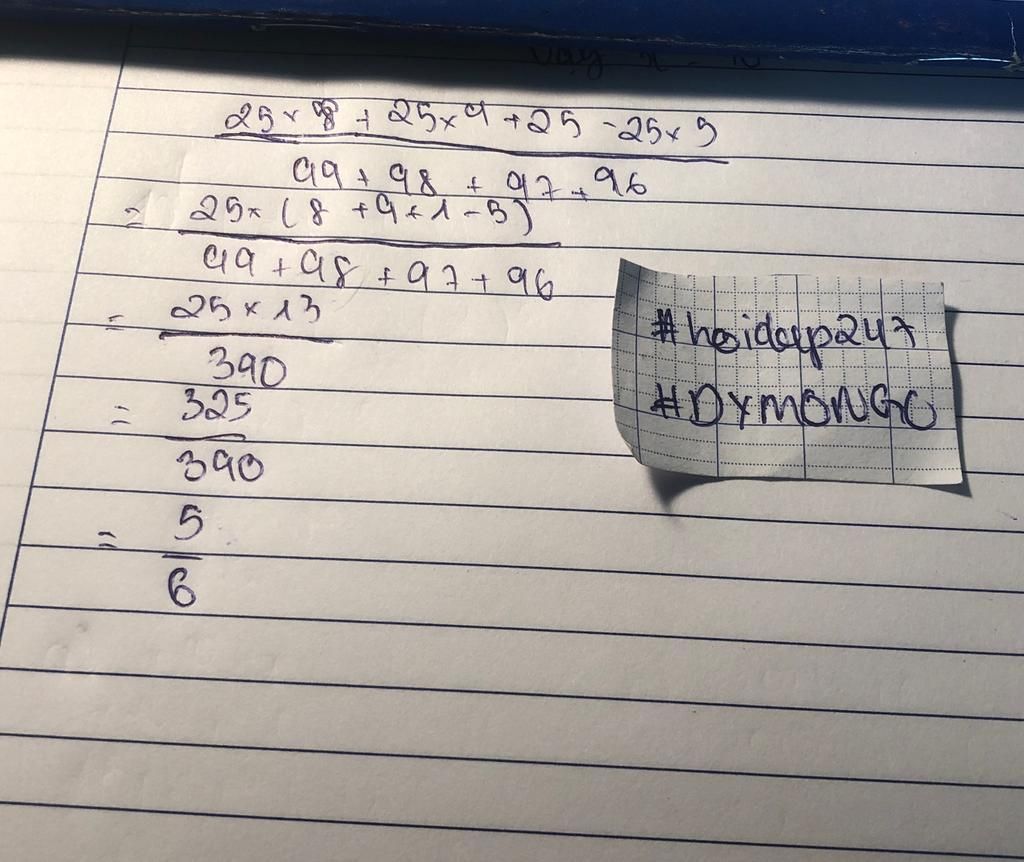 25 × 8 + 25 × 9 + 25 - 25 × 5
99 + 98 + 97 + 96
= 25 × ( 8 + 9 + 1 - 5 )
99 + 98 + 97 + 96
= 25 × 13
390
= 325
390
= 5
6
#hoidap247
#DYMONGO